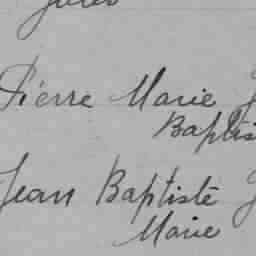 Pierre Marie J
Baptis
Jean Baptiste J
Marie